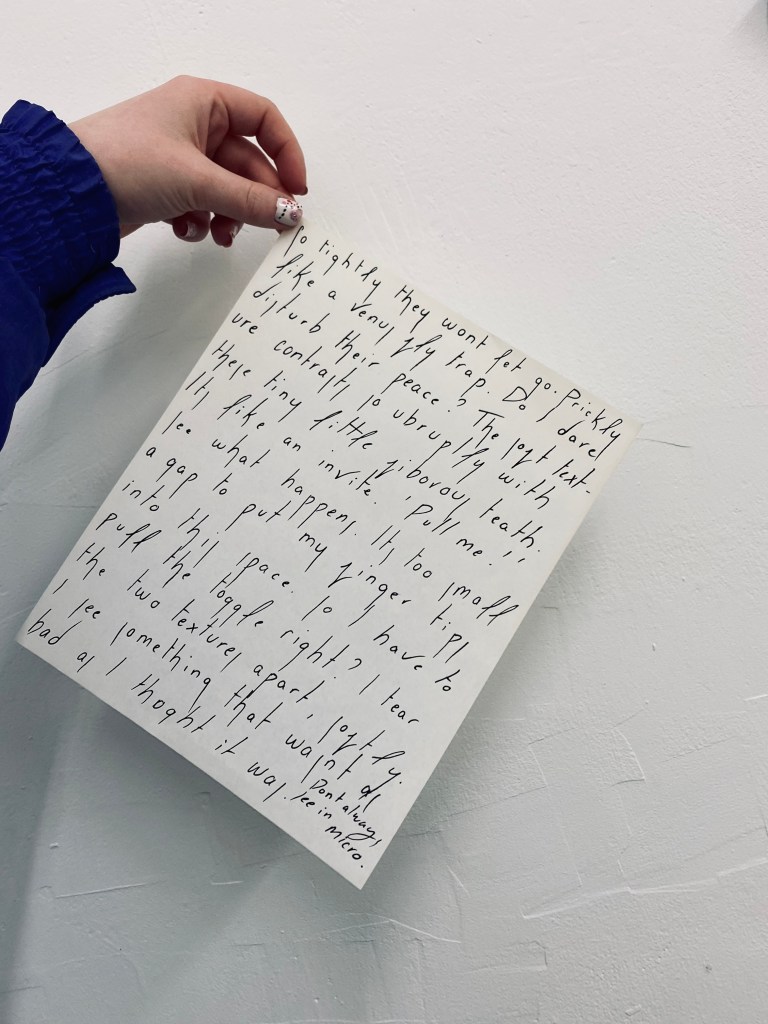 So tightly they wont let go. Prickly
like a venus fly trap. Do I dare
disturb their peace? The soft text-
ure contrasts so ubruptly with
these tiny little fiborous teath.
Its like an invite. 'Pull me!'
see what happens. Its too small
a gap to put my finger tips
into this space. So I have to
pull the toggle right? I tear
the two textures apart, softly.
I see something that wasnt as
bad as I thoght it was.
Dont always
see in
micro.